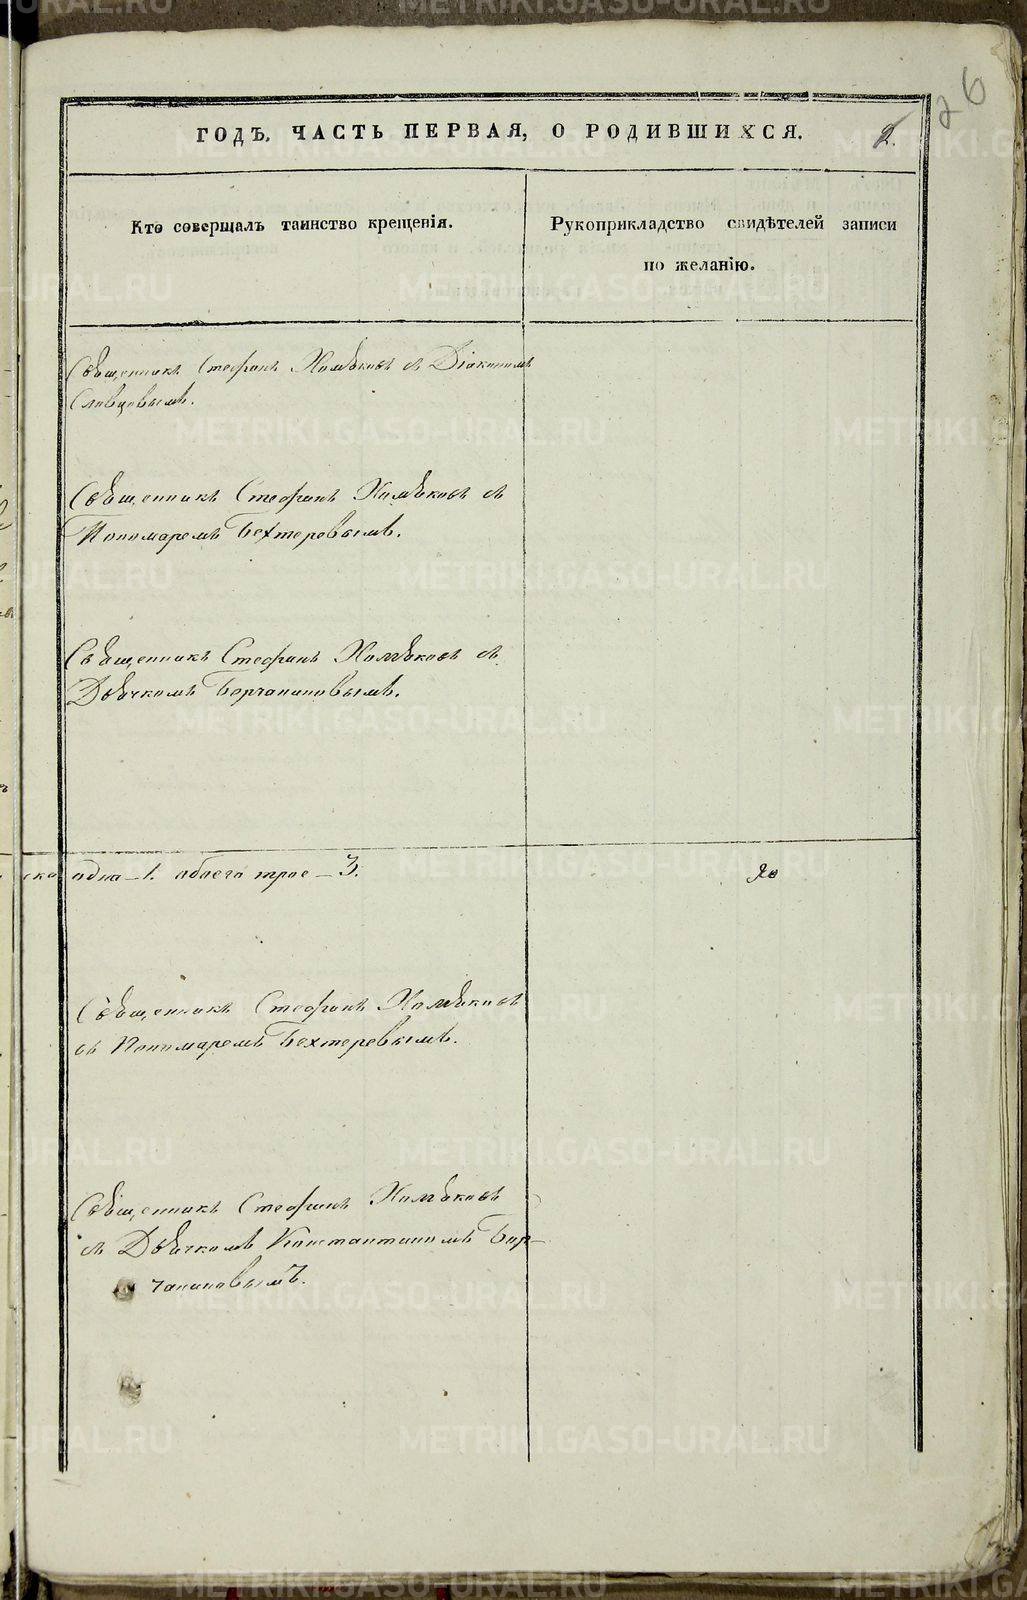 26
ГОДЪ, ЧАСТЬ ПЕРВАЯ, О РОДИВШИХСЯ. 2.
Кто совершалъ таинство крещенія.
Рукоприкладство свидѣтелей записи
по желанію.
Священникъ Стефанъ Хомяковъ съ Діакономъ
Словцовымъ.
Священникъ Стефанъ Хомяковъ съ
Пономаремъ Бехтеревымъ.
Священникъ Стефанъ Хомяковъ съ
Дьячкомъ Борчаниновымъ.
ско одна – 1. обоего трое – 3.
Священникъ Стефанъ Хомяковъ
съ Пономаремъ Бехтеревымъ.
Священникъ Стефанъ Хомяковъ
съ Дьячкомъ Константиномъ Бор-
чаниновымъ.
METRIKI.GASO-URAL.RU